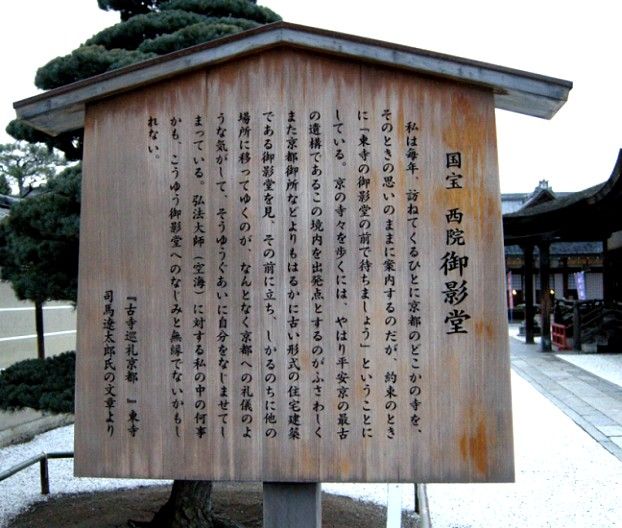 国宝 西院御影堂
私は毎年、訪ねてくるひとに京都のどこかの寺を、
そのときの思いのままに案内するのだが、約束のとき
に「東寺の御影堂の前で待ちましょう」ということに
している。京の寺々を歩くには、やはり平安京の最古
の遺構であるこの境内を出発点とするのがふさわしく
また京都御所などよりもはるかに古い形式の住宅建築
である御影堂を見、その前に立ち、しかるのちに他の
場所に移ってゆくのが、なんとなく京都への礼儀のよ
うな気がして、そうゆうぐあいに自分をなじませてし
まっている。弘法大師（空海）に対する私の中の何事
かも、こうゆう御影堂へのなじみと無縁でないかもし
れない。
『古寺巡礼京都 』東寺
司馬遼太郎氏の文章より